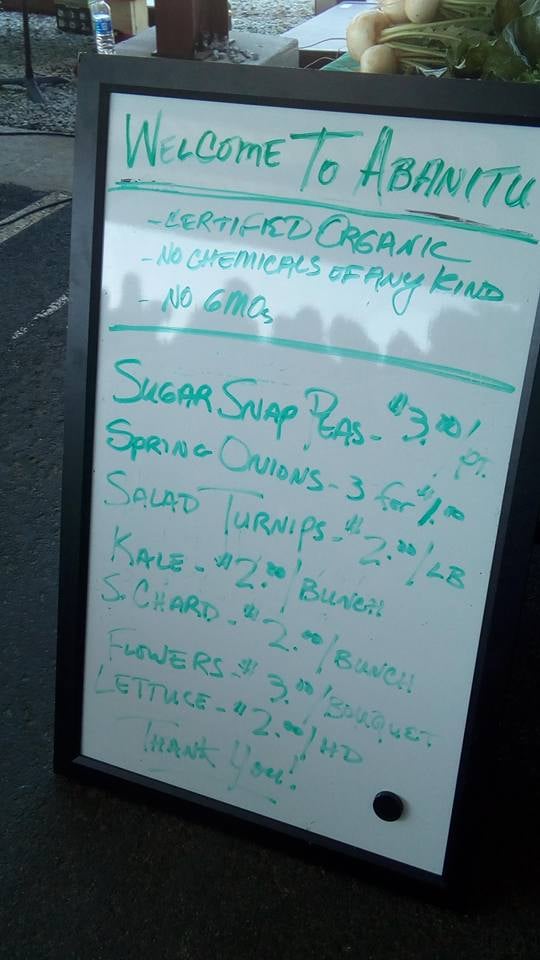 WELCOME TO ABANITU
- CERTIFIED ORGANIC
- NO CHEMICALS OF ANY KIND
- NO GMOs
SUGAR SNAP PEAS - $3.00/PT.
SPRING ONIONS - 3 for $1.00
SALAD TURNIPS - $2.00/LB
KALE - $2.00/BUNCH
S. CHARD - $2.00/BUNCH
FLOWERS - $3.00/BOUQUET
LETTUCE - $2.00/HD
THANK YOU!